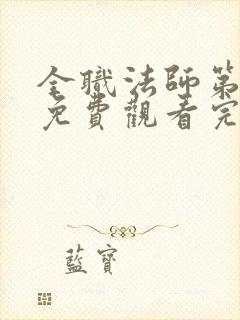 全職法師第
免費觀看完
藍寶